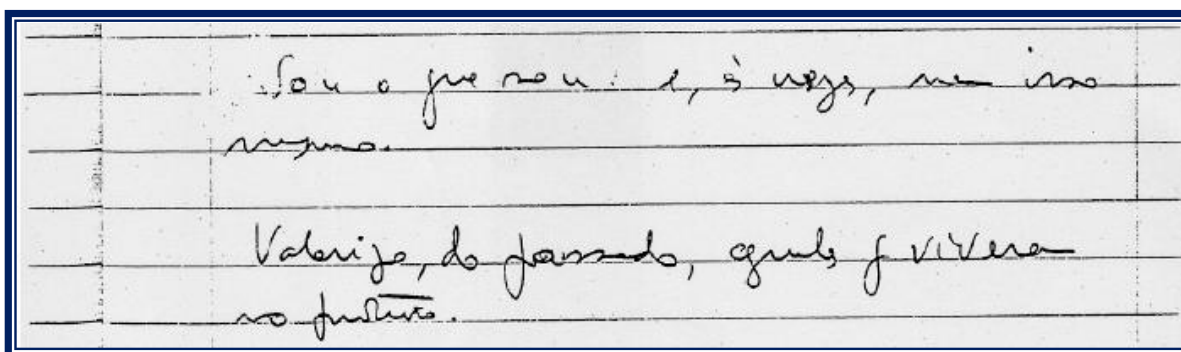 Sou o que sou: e, às vezes, nem isso
mesmo.
Valorize, do passado, aquele q viverá
no futuro.